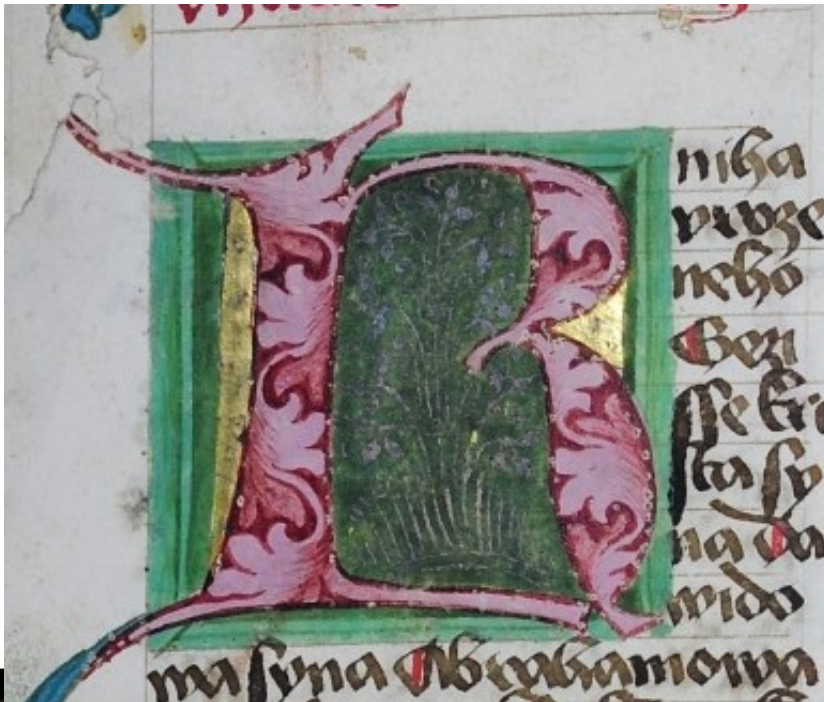 K
niha
vroze
neho
Gezi
sse Kri
sta sy
na da
wido
wa syna Abrahamowa